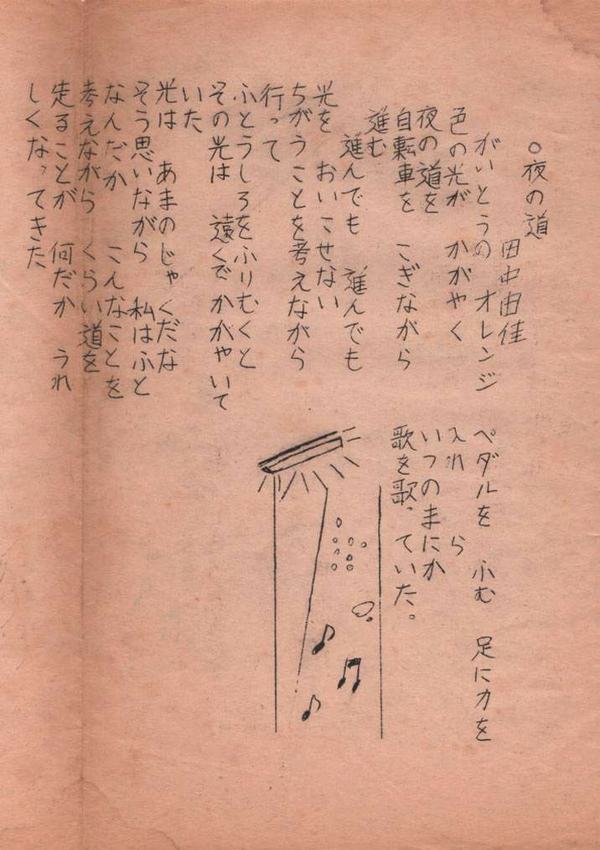 ○夜の道
田中由佳
がいとうの オレンジ
色の光が かがやく
夜の道を
自転車を こぎながら
進む
進んでも 進んでも
光を おいこせない
ちがうことを考えながら
行って
ふとうしろをふりむくと
その光は 遠くでかがやいて
いた
光は あまのじゃくだな
そう思いながら 私はふと
なんだか こんなことを
考えながら くらい道を
走ることが 何だか うれ
しくなってきた
ペダルを ふむ 足に力を
入れ ら
いつのまにか
歌を歌っていた。